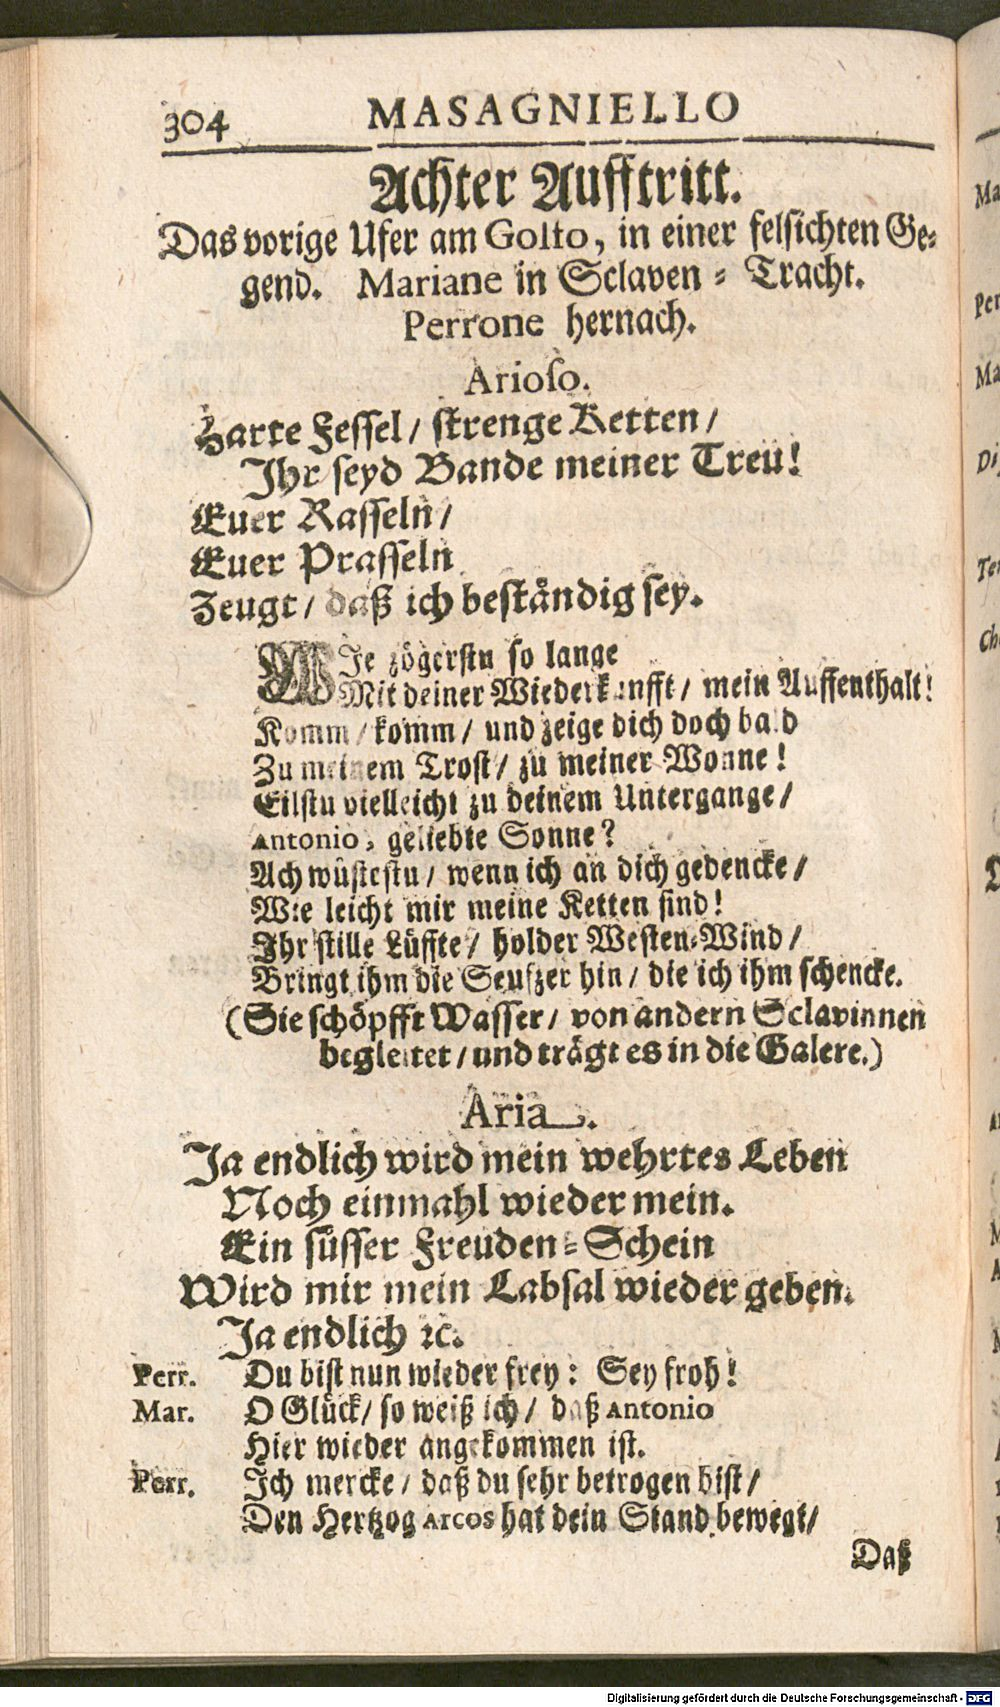 304 MASAGNIELLO
Achter Aufftritt.
Das vorige Ufer am Golfo, in einer felsichten Ge-
gend. Mariane in Sclaven-Tracht.
Perrone hernach.
Arioso.
Harte Fessel/ strenge Ketten/
Ihr seyd Bande meiner Treu!
Euer Rasseln/
Euer Prasseln
Zeugt/ daß ich beständig sey.
WIe zögerstu so lange
Mit deiner Wiederkunfft/ mein Auffenthalt!
Komm/ komm/ und zeige dich doch bald
Zu meinem Trost/ zu meiner Wonne!
Eilstu vielleicht zu deinem Untergange/
Antonio, geliebte Sonne?
Ach wüstestu/ wenn ich an dich gedencke/
Wie leicht mir meine Ketten sind!
Ihr stille Lüffte/ holder Westen-Wind/
Bringt ihm die Seufzer hin/ die ich ihm schencke.
(Sie schöpfft Wasser/ von andern Sclavinnen
begleitet/ und trägt es in die Galere.)
Aria.
Ja endlich wird mein wehrtes Leben
Noch einmahl wieder mein.
Ein süsser Freuden-Schein
Wird mir mein Labsal wieder geben.
Ja endlich ꝛc.
Perr. Du bist nun wieder frey: Sey froh!
Mar. O Glück/ so weiß ich/ daß Antonio
Hier wieder angekommen ist.
Perr. Ich mercke/ daß du sehr betrogen bist/
Den Hertzog Arcos hat dein Stand bewegt/
Daß
Ma
Per
Ma
Di
Ter
Digitalisierung gefördert durch die Deutsche Forschungsgemeinschaft - DFG